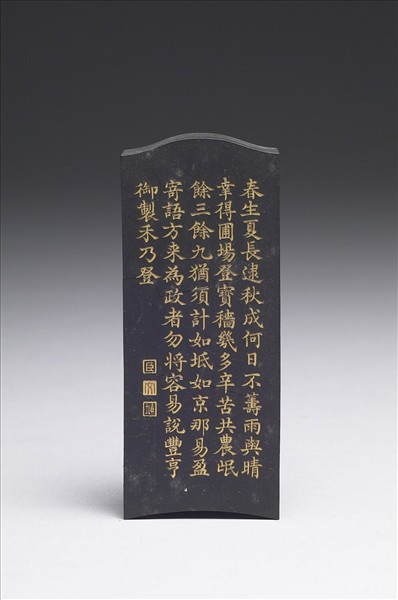 春生夏長逮秋成何日不籌雨與晴
幸得圃場登寶穡幾多辛苦共農氓
餘三餘九猶須計如坻如京那易盈
寄語方来為政者勿將容易說豐亨
御製禾乃登
臣